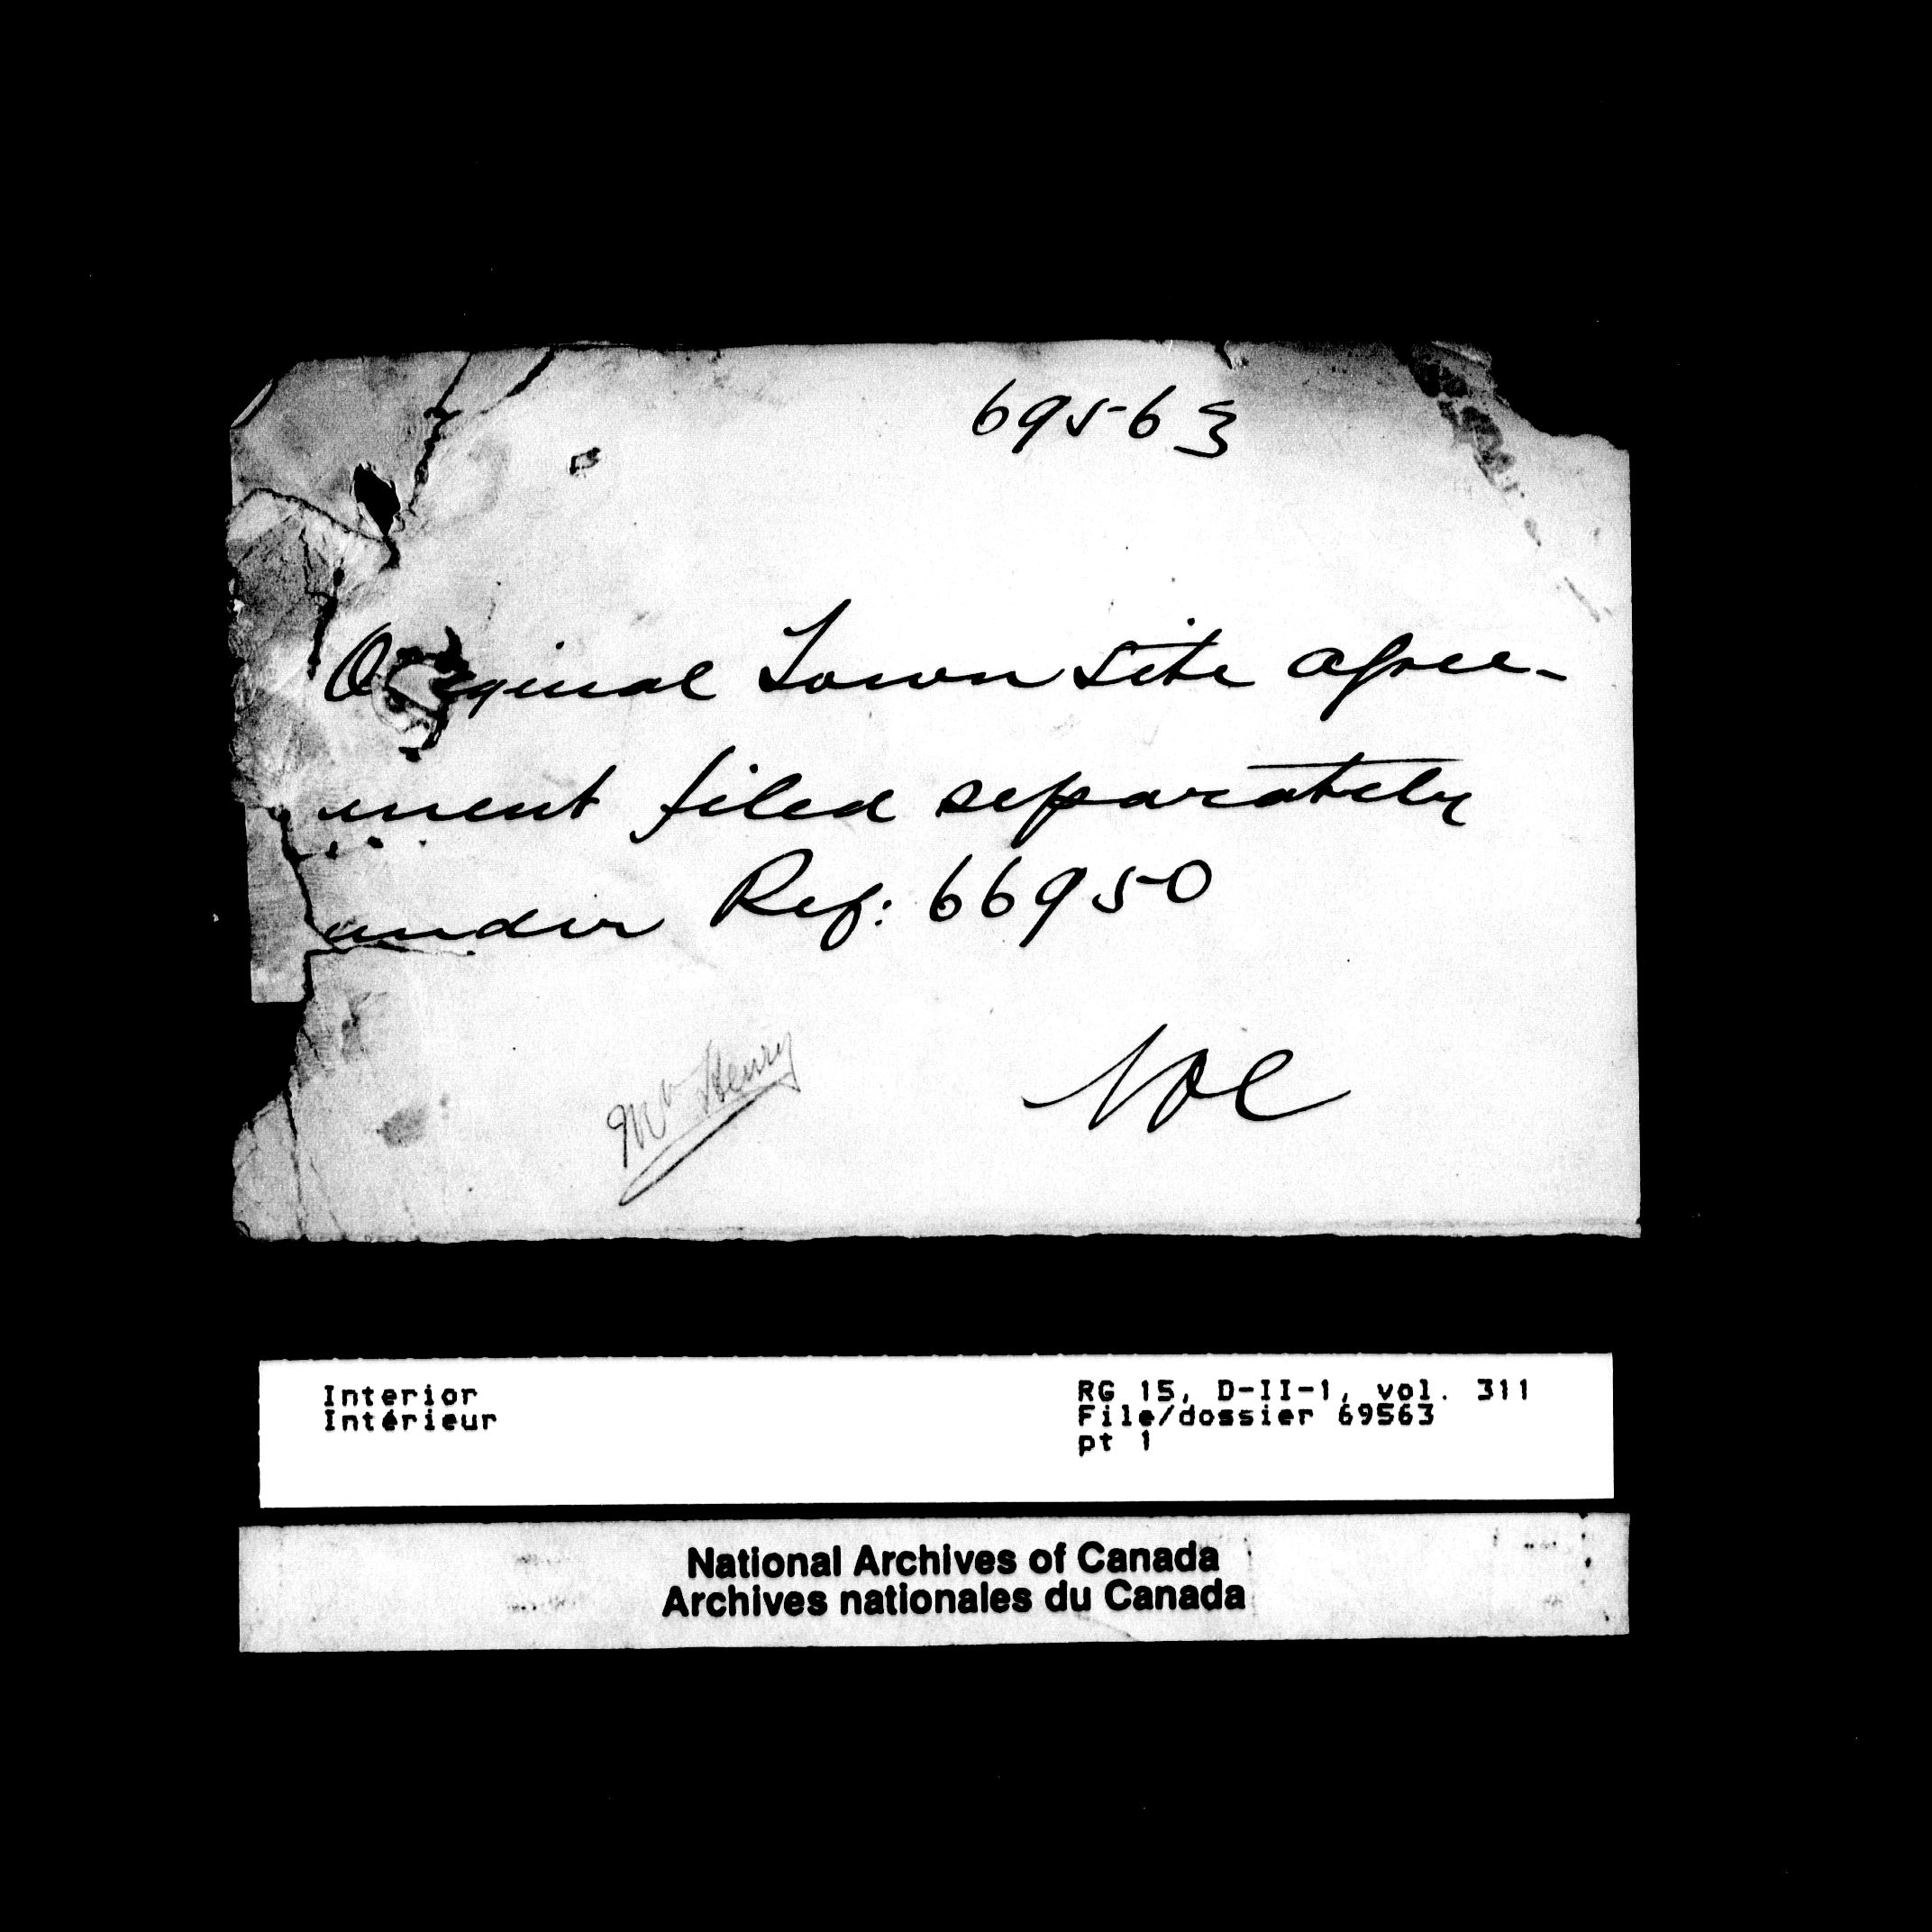 69563
Original Town site agree-
ment filed separately
under Ref: 66950
Mr Henry
Interior
Intérieur
RG 15, D-II-1, vol. 311
File/dossier 69563
pt 1
National Archives of Canada
Archives nationales du Canada